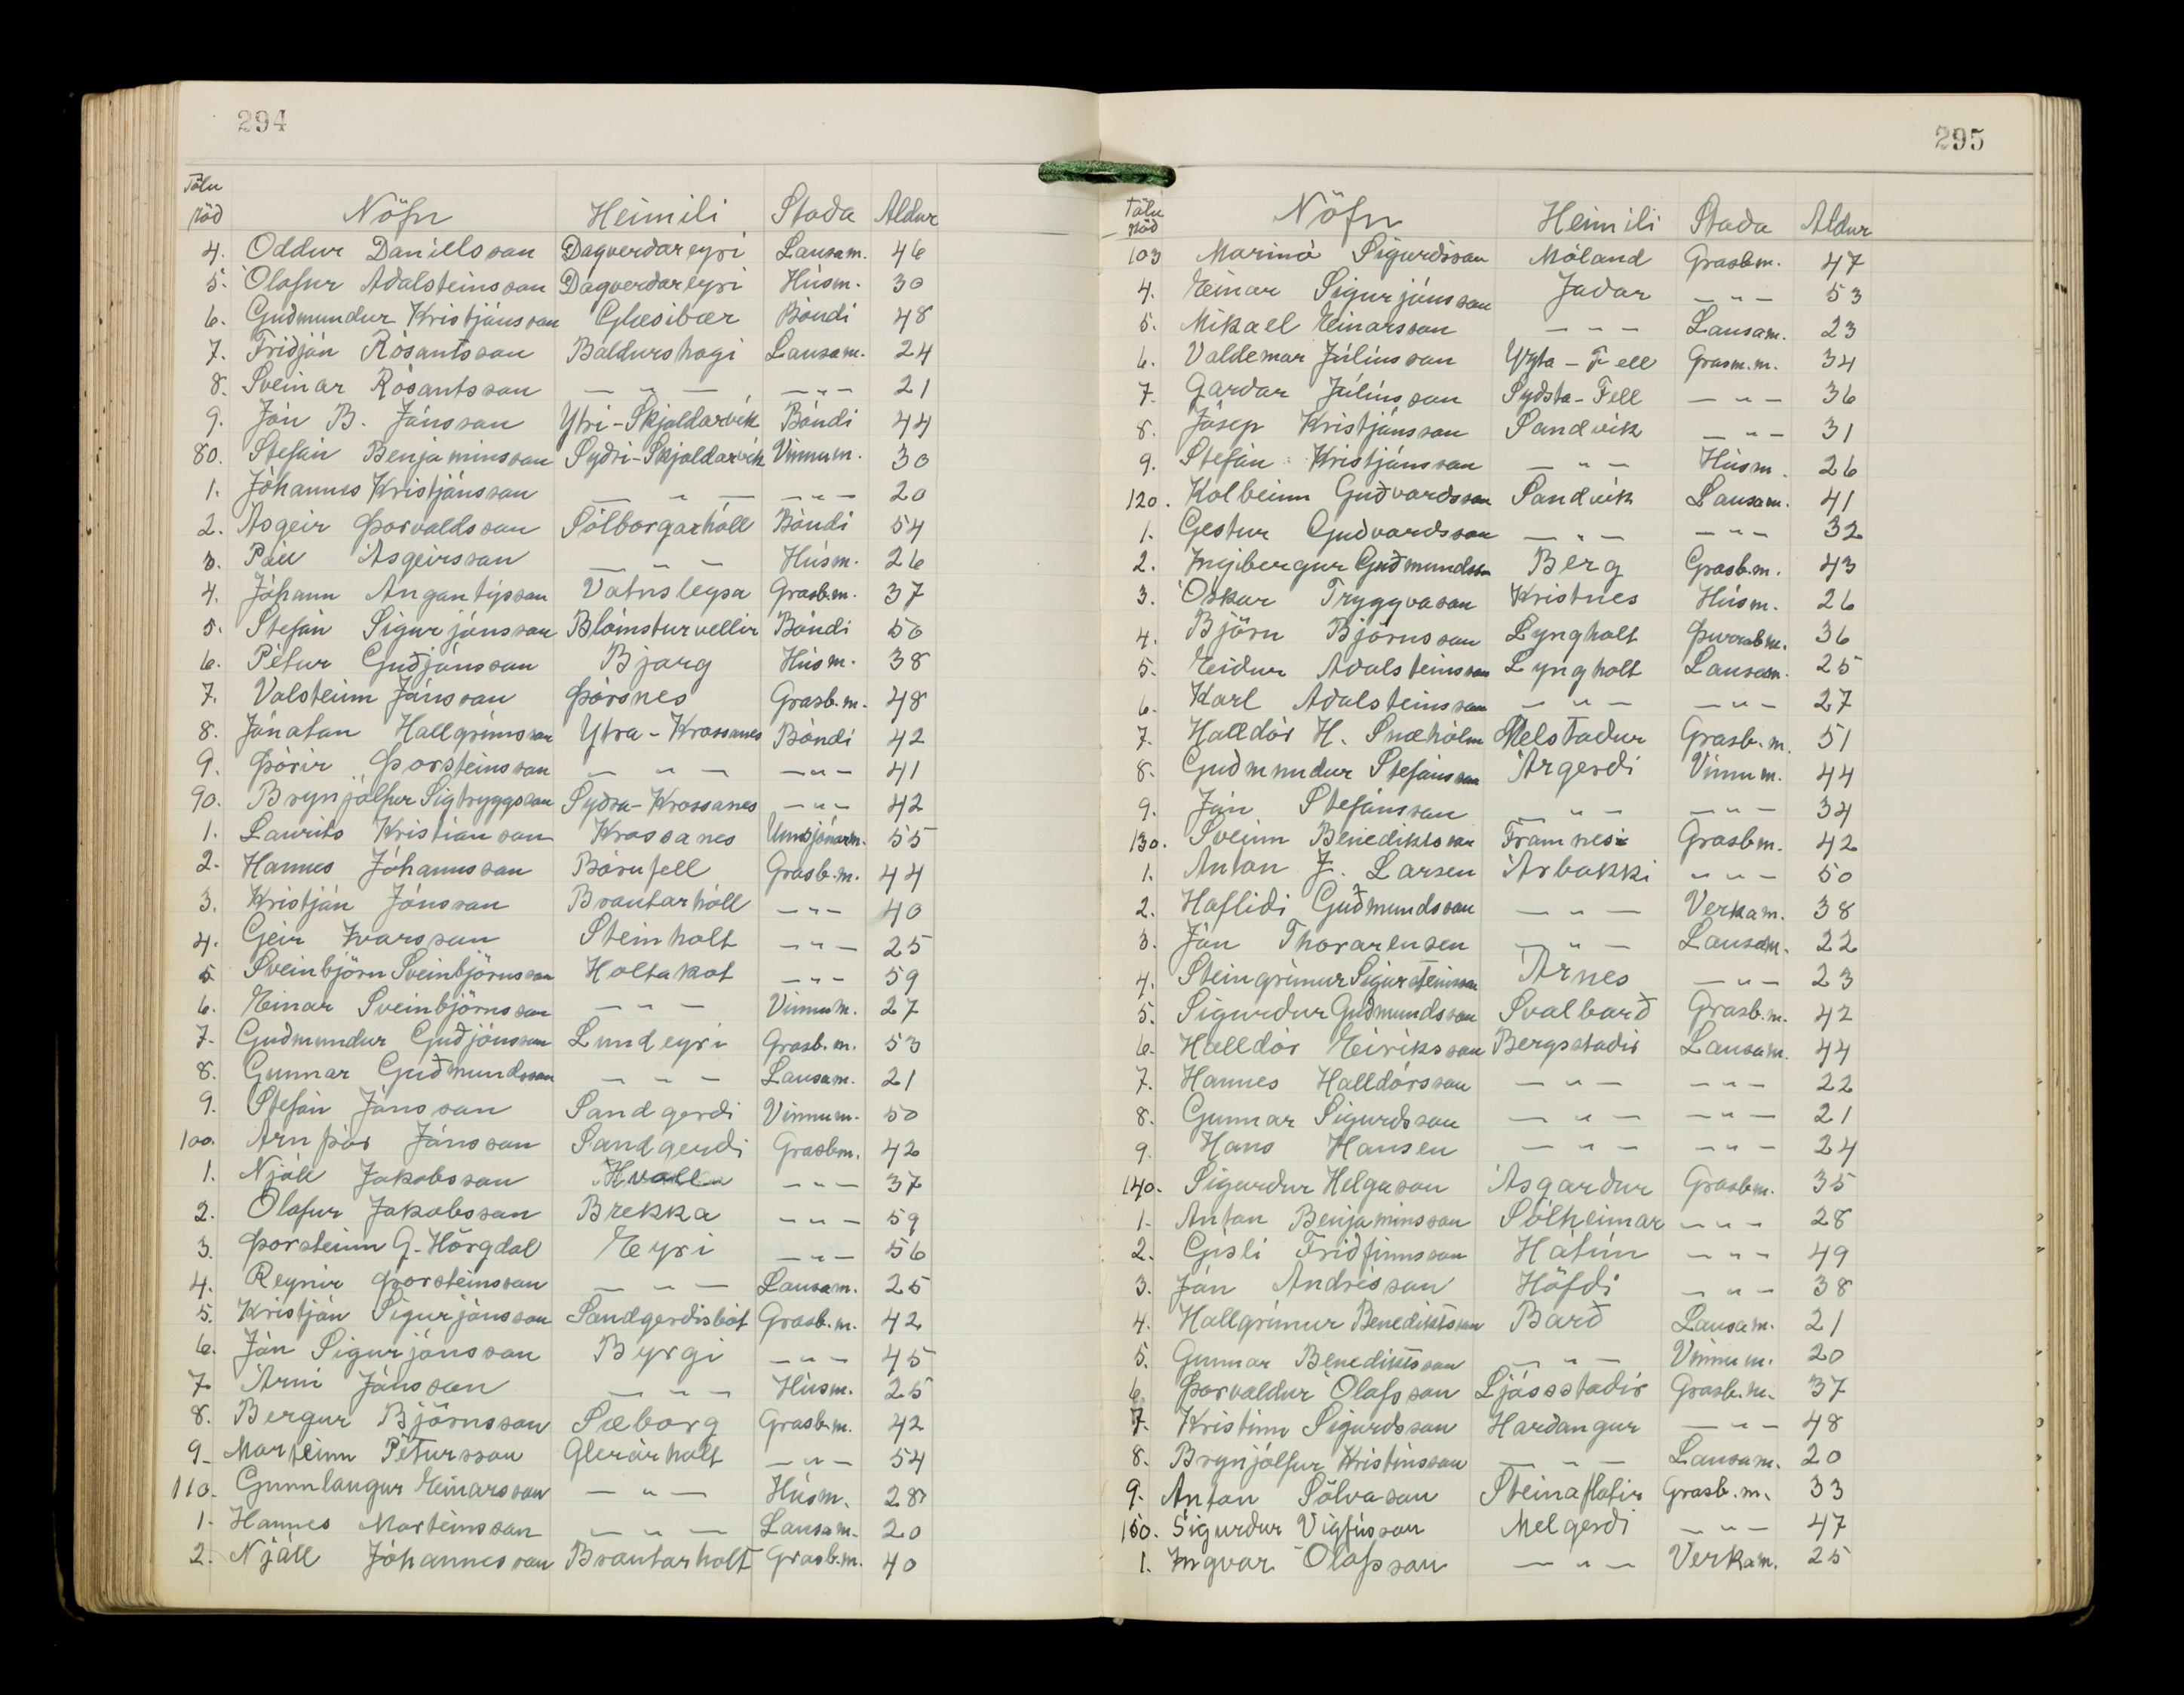 294
Tölu
röð Nöfn Heimili Staða Aldur
4. Oddur Daníelsson Dagverðareyri Lausam. 46
5. Ólafur Aðalsteinsson Dagverðareyri Húsm. 30
6. Guðmundur Kristjánsson Glæsibær Bóndi 48
7. Friðjón Rósantsson Baldurshagi Lausam. 24
8. Sveinar Rósantsson — " — — " — 21
9. Jón B. Jónsson Ytri-Skjaldarvík Bóndi 44
80. Stefán Benjamínsson Syðri-Skjaldarvík Vinnum. 30
1. Jóhannes Kristjánsson — " — — " — 20
2. Ásgeir Þorvaldsson Sólborgarhóll Bóndi 54
3. Páll Ásgeirsson — " — Húsm. 26
4. Jóhann Angantýsson Vatnsleysa Grasb.m. 37
5. Stefán Sigurjónsson Blómsturvellir Bóndi 50
6. Pétur Guðjónsson Bjarg Húsm. 38
7. Valsteinn Jónsson Þórsnes Grasb.m. 48
8. Jónatan Hallgrímsson Ytra-Krossanes Bóndi 42
9. Þórir Þorsteinsson — " — — " — 41
90. Brynjólfur Sigtryggsson Syðra-Krossanes — " — 42
1. Laurits Kristiansson Krossanes Umsjónarm. 55
2. Hannes Jóhannsson Bárufell Grasb.m. 44
3. Kristján Jónsson Brautarhóll — " — 40
4. Geir Ívarsson Steinholt — " — 25
5 Sveinbjörn Sveinbjörnsson Holtakot — " — 59
6. Einar Sveinbjörnsson — " — Vinnum. 27
7. Guðmundur Guðjónsson Lundeyri Grasb.m. 53
8. Gunnar Guðmundsson — " — Lausam. 21
9. Stefán Jónsson Sandgerði Vinnum. 50
100. Arnþór Jónsson Sandgerði Grasbm. 42
1. Njáll Jakobsson Hvoll — " — 37
2. Ólafur Jakobsson Brekka — " — 59
3. Þorsteinn G. Hörgdal Eyri — " — 56
4. Reynir Þorsteinsson — " — Lausam. 25
5. Kristján Sigurjónsson Sandgerðisbót Grasb.m. 42
6. Jón Sigurjónsson Byrgi — " — 45
7. Árni Jónsson — " — Húsm. 25
8. Bergur Björnsson Sæborg Grasb.m. 42
9. Marteinn Pétursson Glerárholt — " — 54
110. Gunnlaugur Einarsson — " — Húsm. 28
1. Hannes Marteinsson — " — Lausam. 20
2. Njáll Jóhannesson Brautarholt Grasb.m. 40
295
Tölu
röð Nöfn Heimili Staða Aldur
103 Marinó Sigurðsson Móland Grasbm. 47
4. Einar Sigurjónsson Jaðar — " — 53
5. Mikael Einarsson — " — Lausam. 23
6. Valdemar Júlíusson Yzta-Fell Grasm.m. 34
7. Garðar Júlíusson Syðsta-Fell — " — 36
8. Jósep Kristjánsson Sandvík — " — 31
9. Stefán Kristjánsson — " — Húsm. 26
120. Kolbeinn Guðvarðsson Sandvík Lausam. 41
1. Gestur Guðvarðsson — " — — " — 32
2. Ingibergur Guðmundsson Berg Grasb.m. 43
3. Óskar Tryggvason Kristnes Húsm. 26
4. Björn Björnsson Lyngholt Þurrabm. 36
5. Eiður Aðalsteinsson Lyngholt Lausam. 25
6. Karl Aðalsteinsson — " — — " — 27
7. Halldór H. Snæhólm Melstaður Grasb.m. 51
8. Guðmundur Stefánsson Árgerði Vinnum. 44
9. Jón Stefánsson — " — — " — 34
130. Sveinn Benediktsson Framnes Grasbm. 42
1. Anton J. Larsen Árbakki — " — 50
2. Hafliði Guðmundsson — " — Verkam. 38
3. Jón Thorarensen — " — Lausam. 22
4. Steingrímur Sigursteinsson Árnes — " — 23
5. Sigurður Guðmundsson Svalbarð Grasb.m. 42
6. Halldór Eiríksson Bergsstaðir Lausam. 44
7. Hannes Halldórsson — " — — " — 22
8. Gunnar Sigurðsson — " — — " — 21
9. Hans Hansen — " — — " — 24
140. Sigurður Helgason Ásgarður Grasbm. 35
1. Anton Benjamínsson Sólheimar — " — 28
2. Gísli Friðfinnsson Hátún — " — 49
3. Jón Andrésson Höfði — " — 38
4. Hallgrímur Benediktsson Barð Lausam. 21
5. Gunnar Benediktsson — " — Vinnum. 20
6. Þorvaldur Ólafsson Ljósstaðir Grasb.m. 37
7. Kristinn Sigurðsson Harðangur — " — 48
8. Brynjólfur Kristinsson — " — Lausam. 20
9. Anton Sölvason Steinaflatir Grasb.m. 33
150. Sigurður Vigfússon Melgerði — " — 47
1. Ingvar Ólafsson — " — Verkam. 25